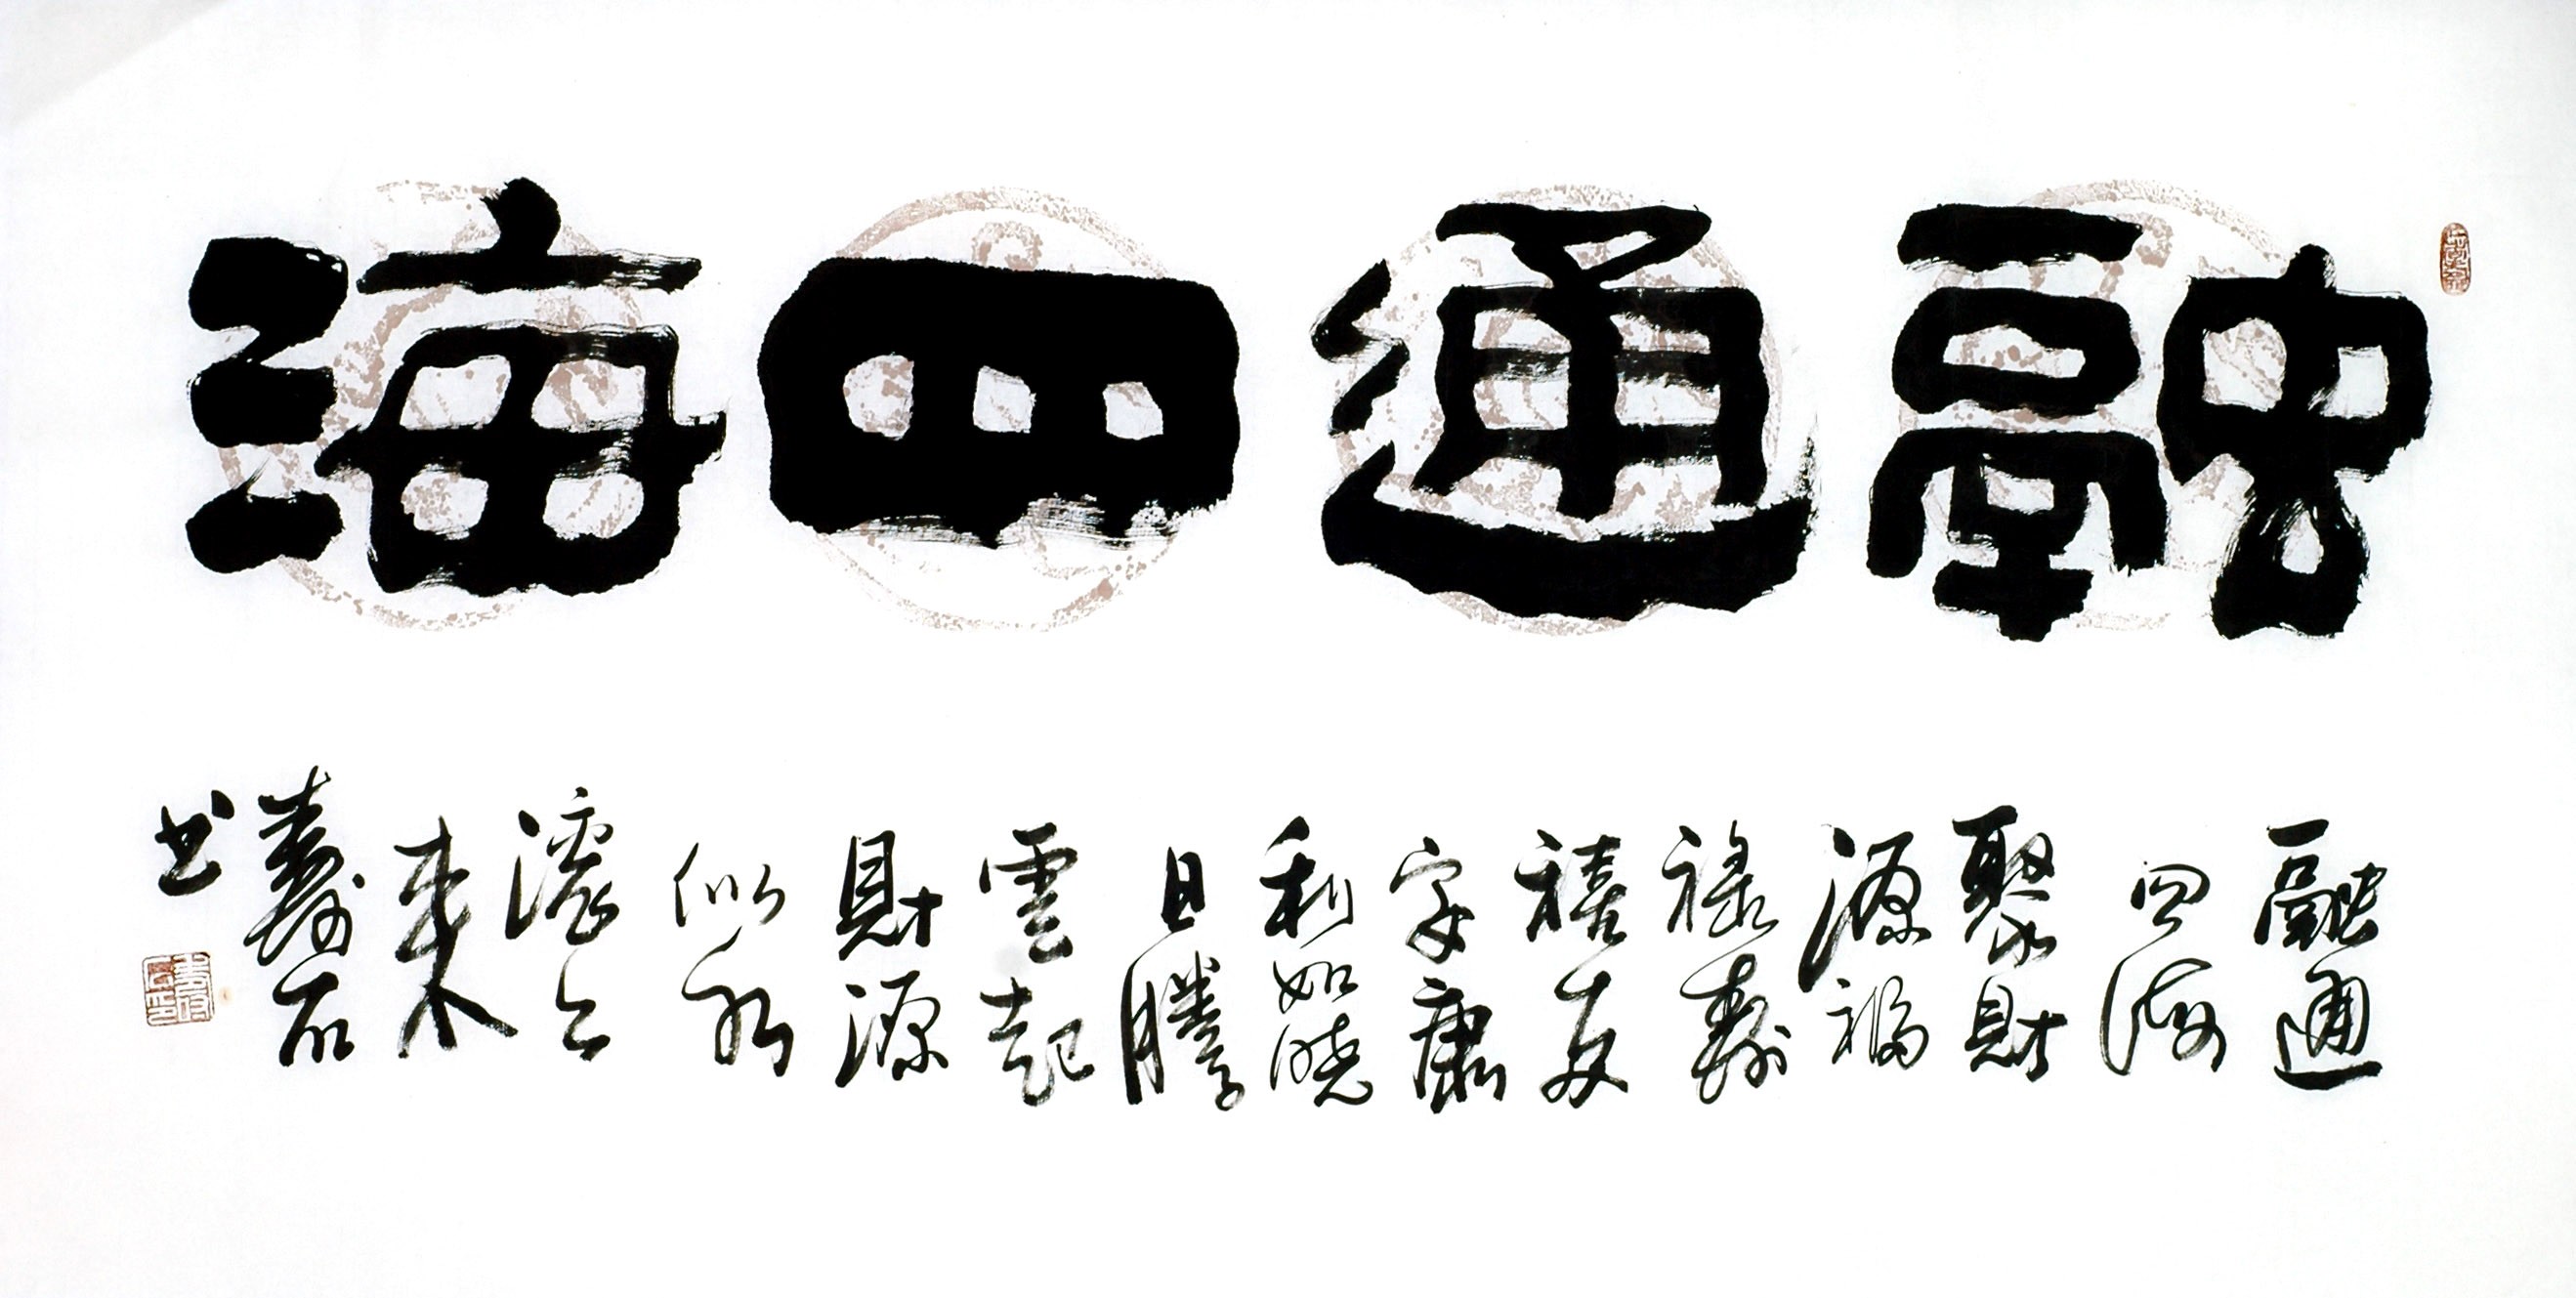 融通四海
融通
四海
聚財
源福
祿壽
禧友
字康
利如曉
日騰
雲起
財源
似水
滾々
來
壽石
书